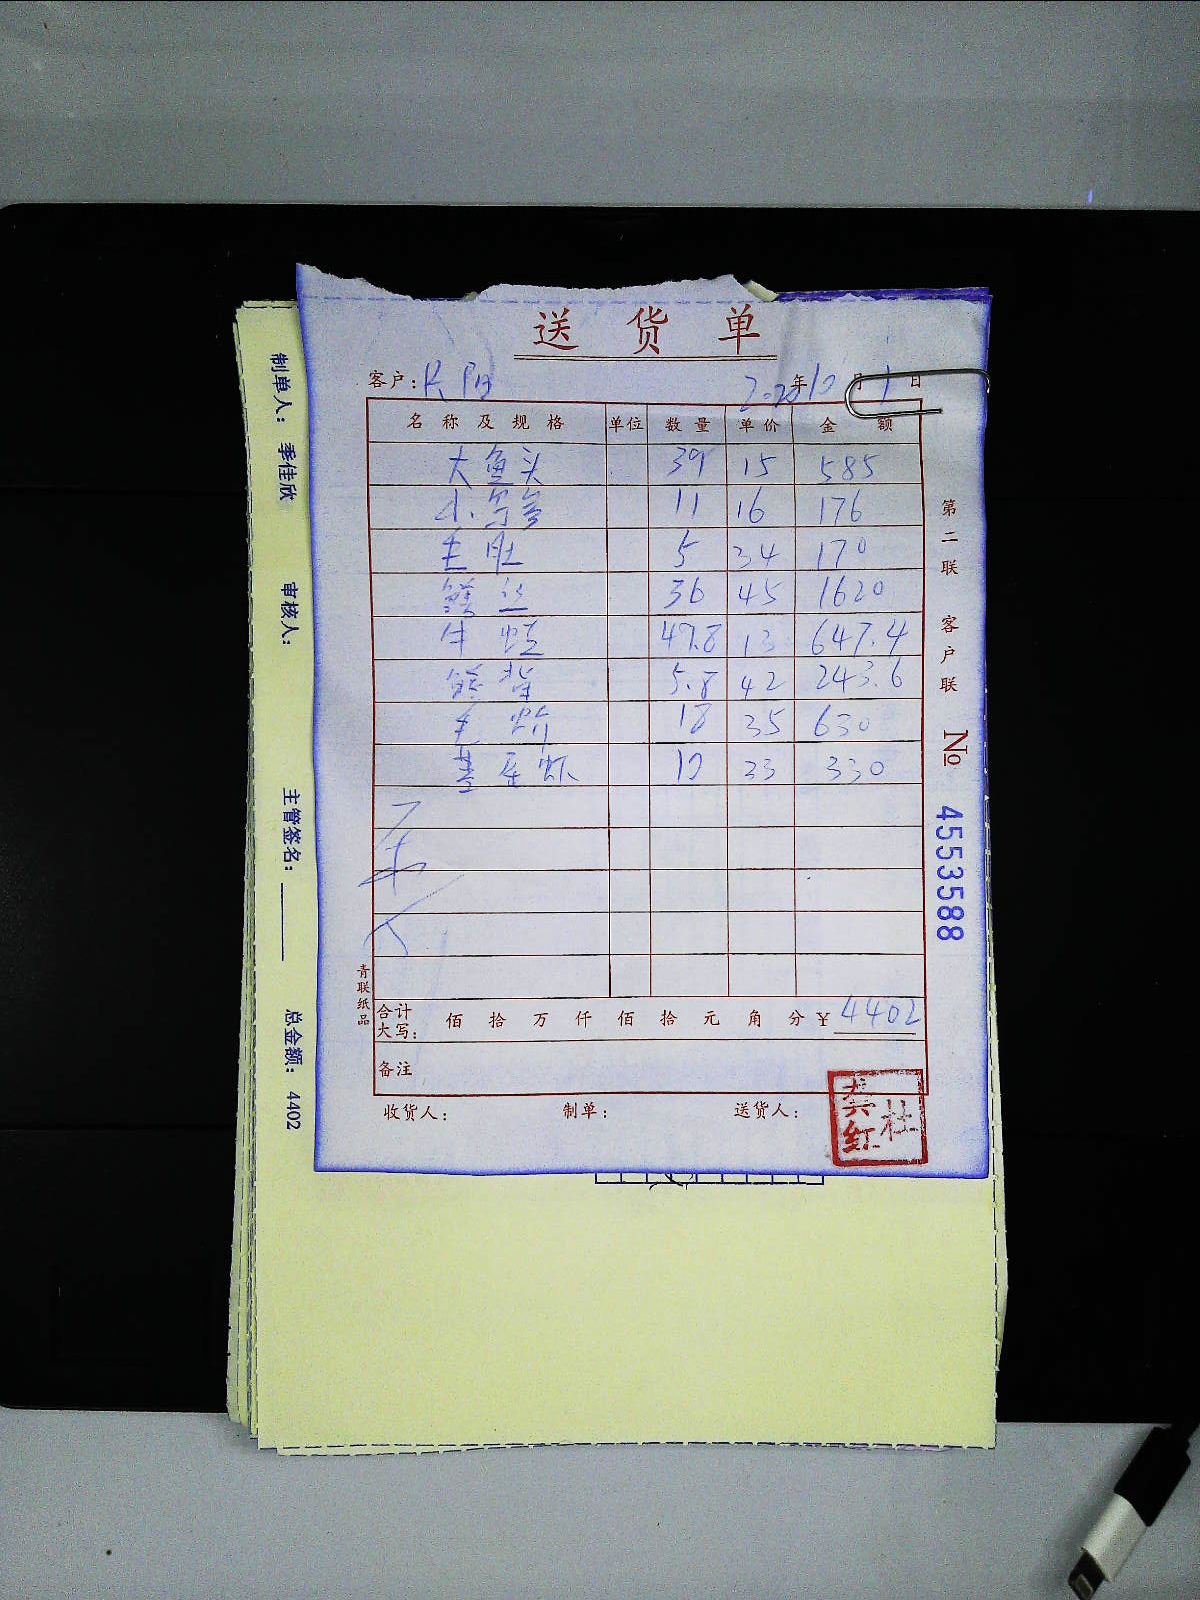 送货单
客户: 民阳 2020年10月1日
名称及规格 单位 数量 单价 金额
大鱼头 39 15 585
小乌 11 16 176
毛肚 5 34 170
鳝丝 36 45 1620
牛蛙 47.8 13 647.4
鳝背 5.8 42 243.6
毛 18 35 630
基尾虾 10 33 330
合计大写: 佰 拾 万 仟 佰 拾 元 角 分 ¥4402
备注
收货人: 制单: 送货人:
龚红杜
青联纸品
第二联 客户联 No 4553588
制单人: 季佳欣 审核人: 主管签名: 总金额: 4402